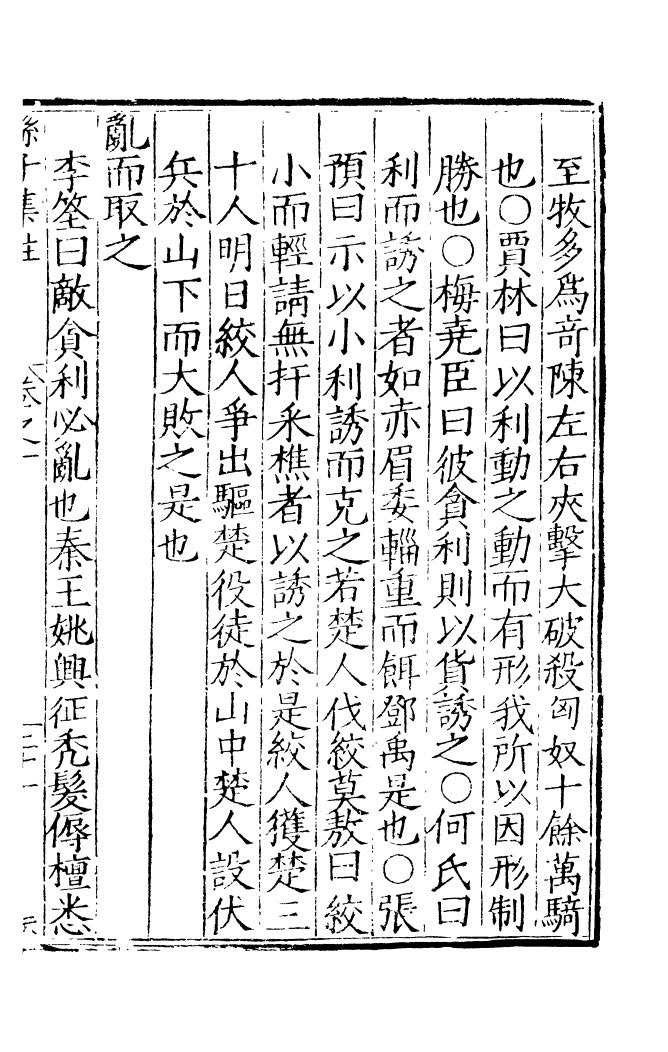 至牧多爲奇陳左右夾擊大破殺匈奴十餘萬騎
也〇賈林曰以利動之動而有形我所以因形制
勝也〇梅堯臣曰彼貪利則以貨誘之〇何氏曰
利而誘之者如赤眉委輜重而餌鄧禹是也〇張
預曰示以小利誘而克之若楚人伐絞莫敖曰絞
小而輕請無扞采樵者以誘之於是絞人獲楚三
十人明日絞人爭出驅楚役徒於山中楚人設伏
兵於山下而大敗之是也
亂而取之
李筌曰敵貪利必亂也秦王姚興征禿髮傉檀悉